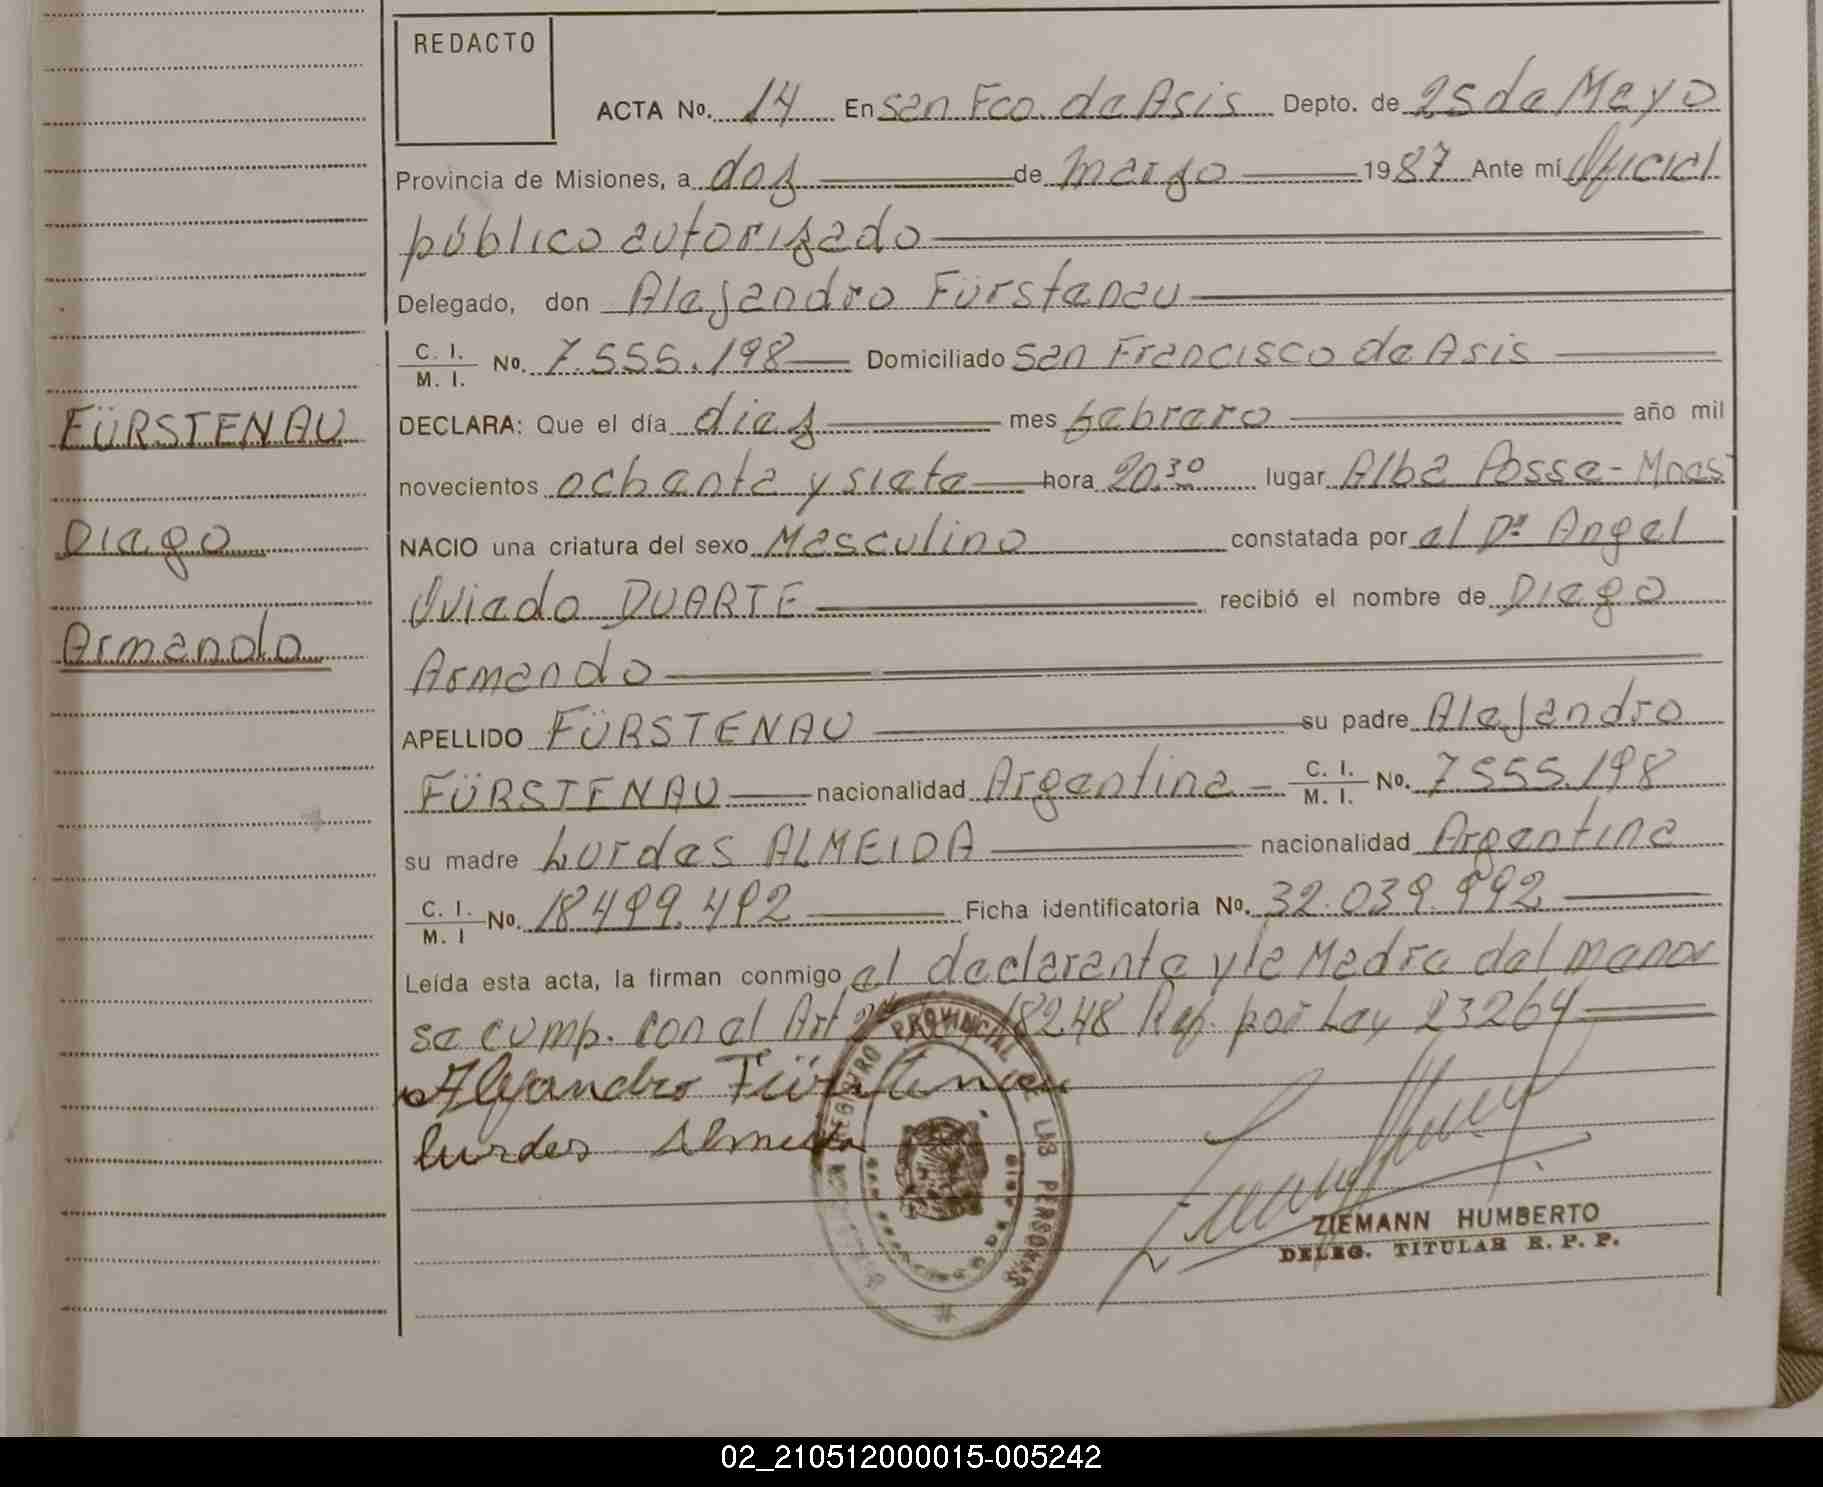 REDACTO
ACTA No. 14 En San Fco. de Asis Depto. de 25 de Mayo
Provincia de Misiones, a dos de marzo 1987 Ante mí Oficial
público autorizado
Delegado, don Alejandro Fürstenau
C. I. / M. I. No. 7.555.198 Domiciliado San Francisco de Asis
DECLARA: Que el día diez mes febrero año mil
novecientos ochenta y siete hora 20.30 lugar Alba Posse - Mnes
NACIO una criatura del sexo Masculino constatada por el Dr Angel
Oviedo DUARTE recibió el nombre de Diego
Armando
APELLIDO FÜRSTENAU su padre Alejandro
FÜRSTENAU nacionalidad Argentina - C. I. / M. I. No. 7555.198
su madre Lurdes ALMEIDA nacionalidad Argentina
C. I. / M. I No. 18499.492 Ficha identificatoria No. 32.039.992
Leída esta acta, la firman conmigo el declarante y la Madre del menor
se cump. con el Art 2 18248 Ref. por Ley 23264
Alejandro Fürstenau
Lurdes Almeida
FÜRSTENAU
Diego
Armando
REGISTRO PROVINCIAL DE LAS PERSONAS
ZIEMANN HUMBERTO
DELEG. TITULAR R. P. P.
02_210512000015-005242